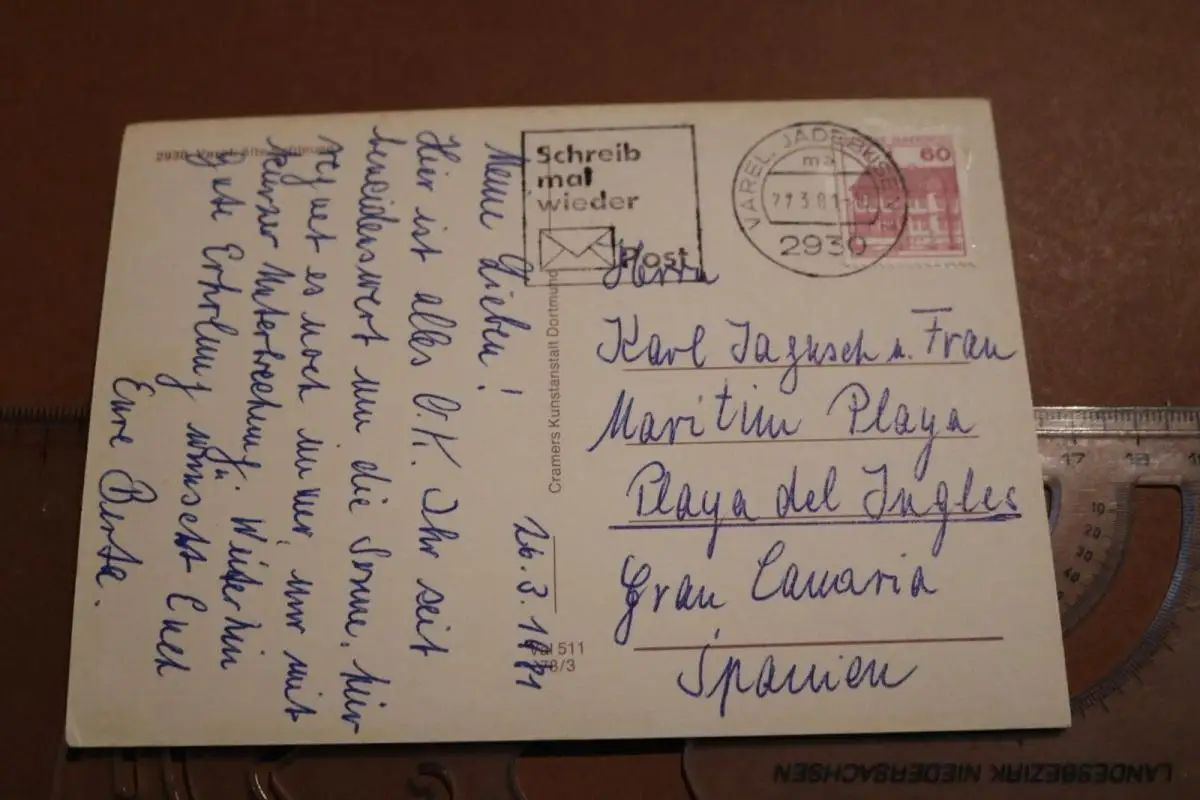 Meine Lieben!
26.3.1981
Hier ist alles O.K. Ihr seit
beneidenswert um die Sonne, hier
regnet es noch immer, nur mit
kurzer Unterbrechung. Weiterhin
gute Erholung wünscht Euch
Eure Berta.
Schreib
mal
wieder
Post
VAREL, JADEBUSEN
ma
27.3.81
2930
60
Cramers Kunstanstalt Dortmund
Val 511
178/3
Herrn
Karl Jagusch u. Frau
Maritim Playa
Playa del Ingles
Gran Canaria
Spanien
17 18
10
20
30
40
LANDESBEZIRK NIEDERSACHSEN